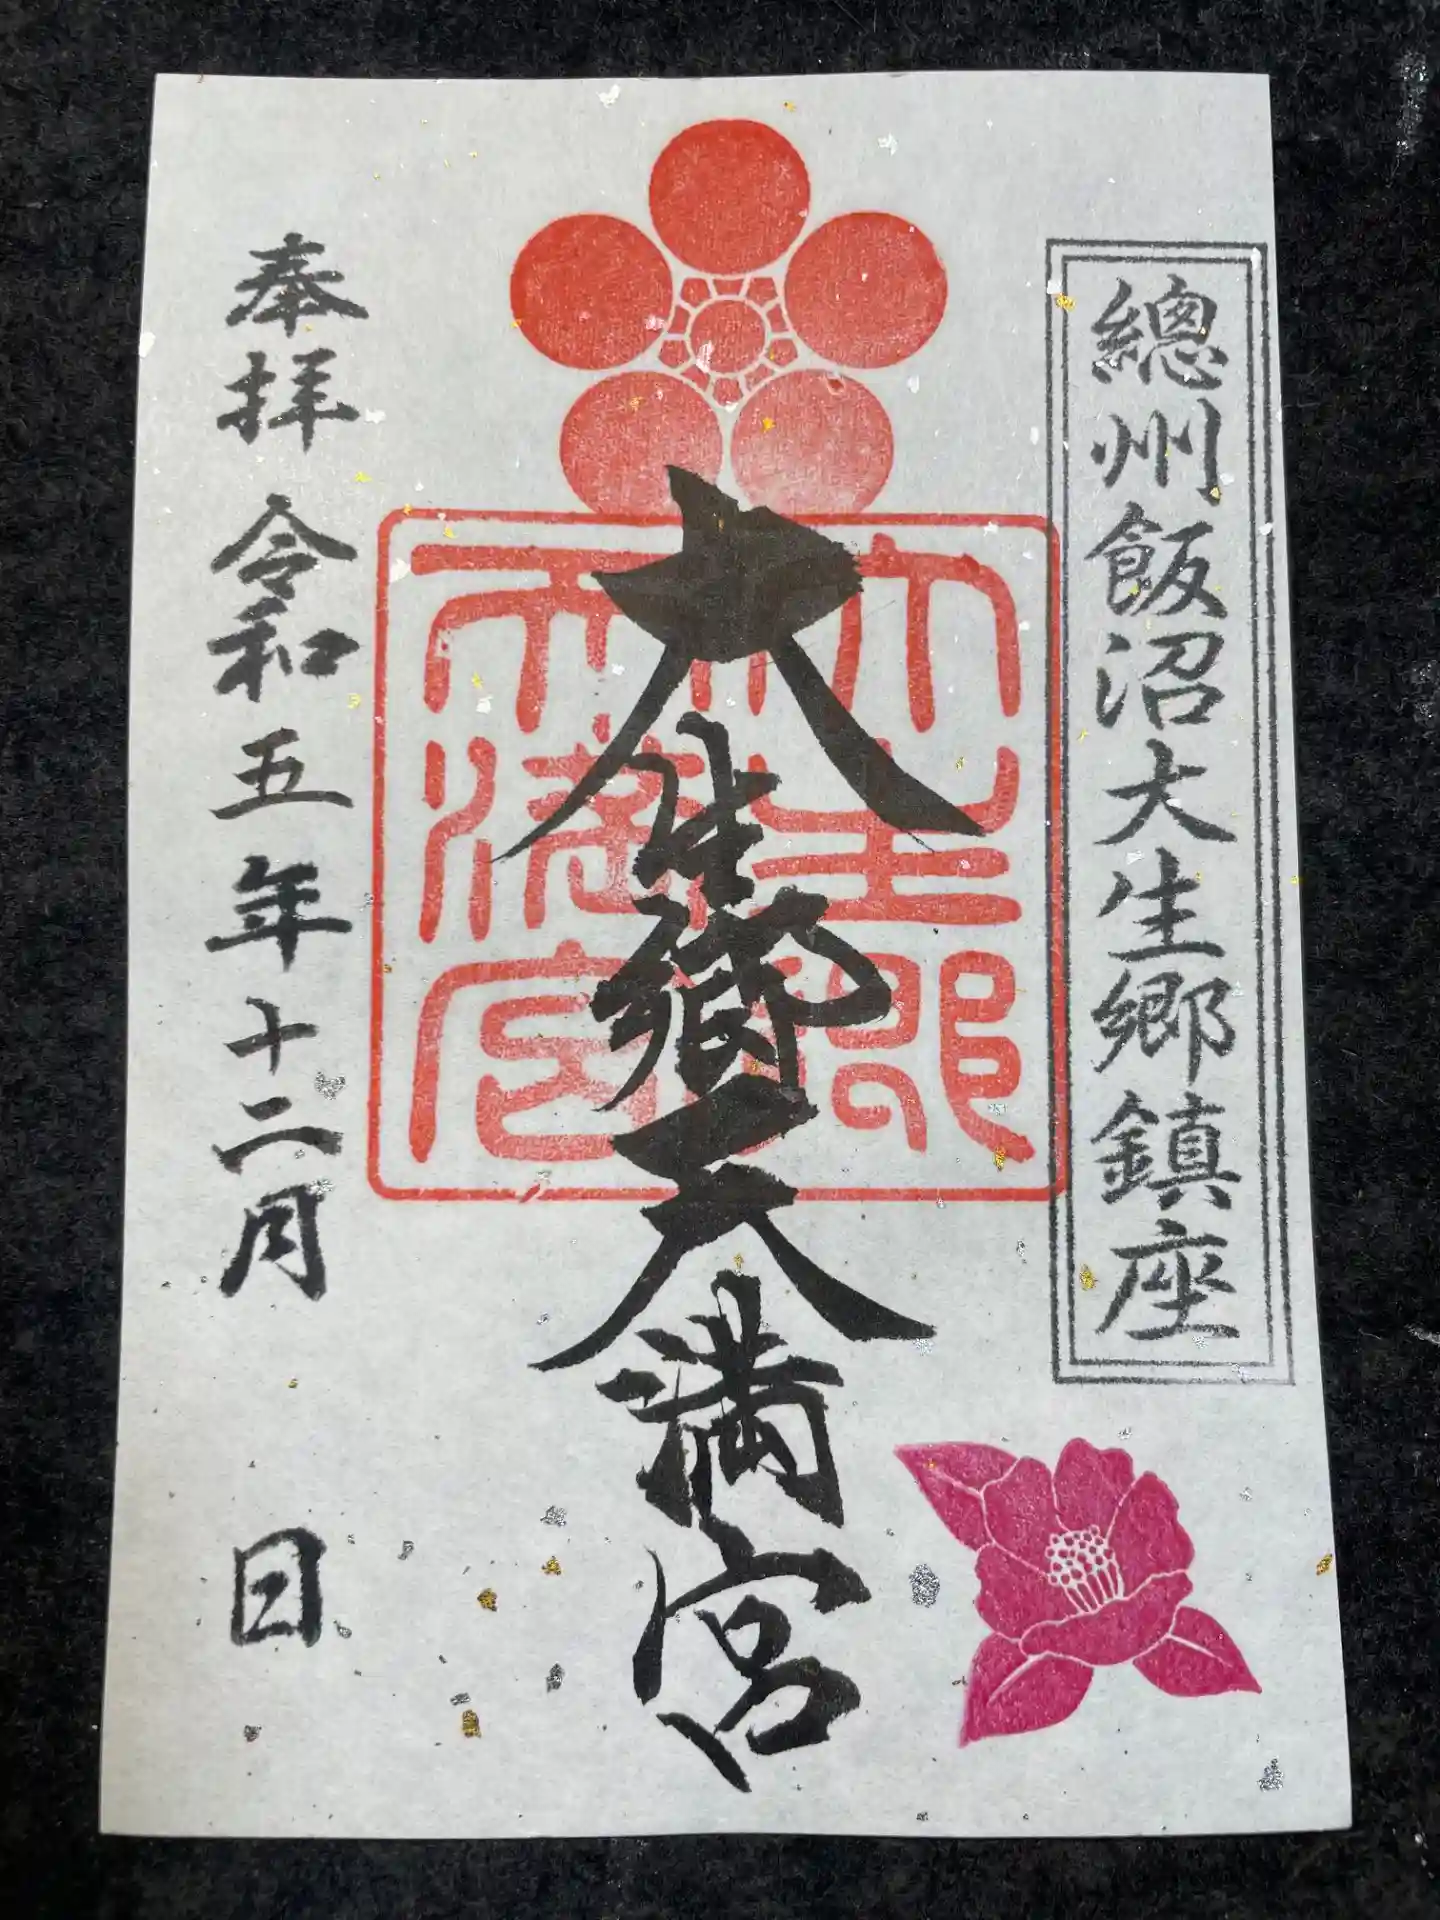 總州飯沼大生郷鎮座
大生郷天満宮
大生郷
天満宮
奉拝 令和五年十二月 日